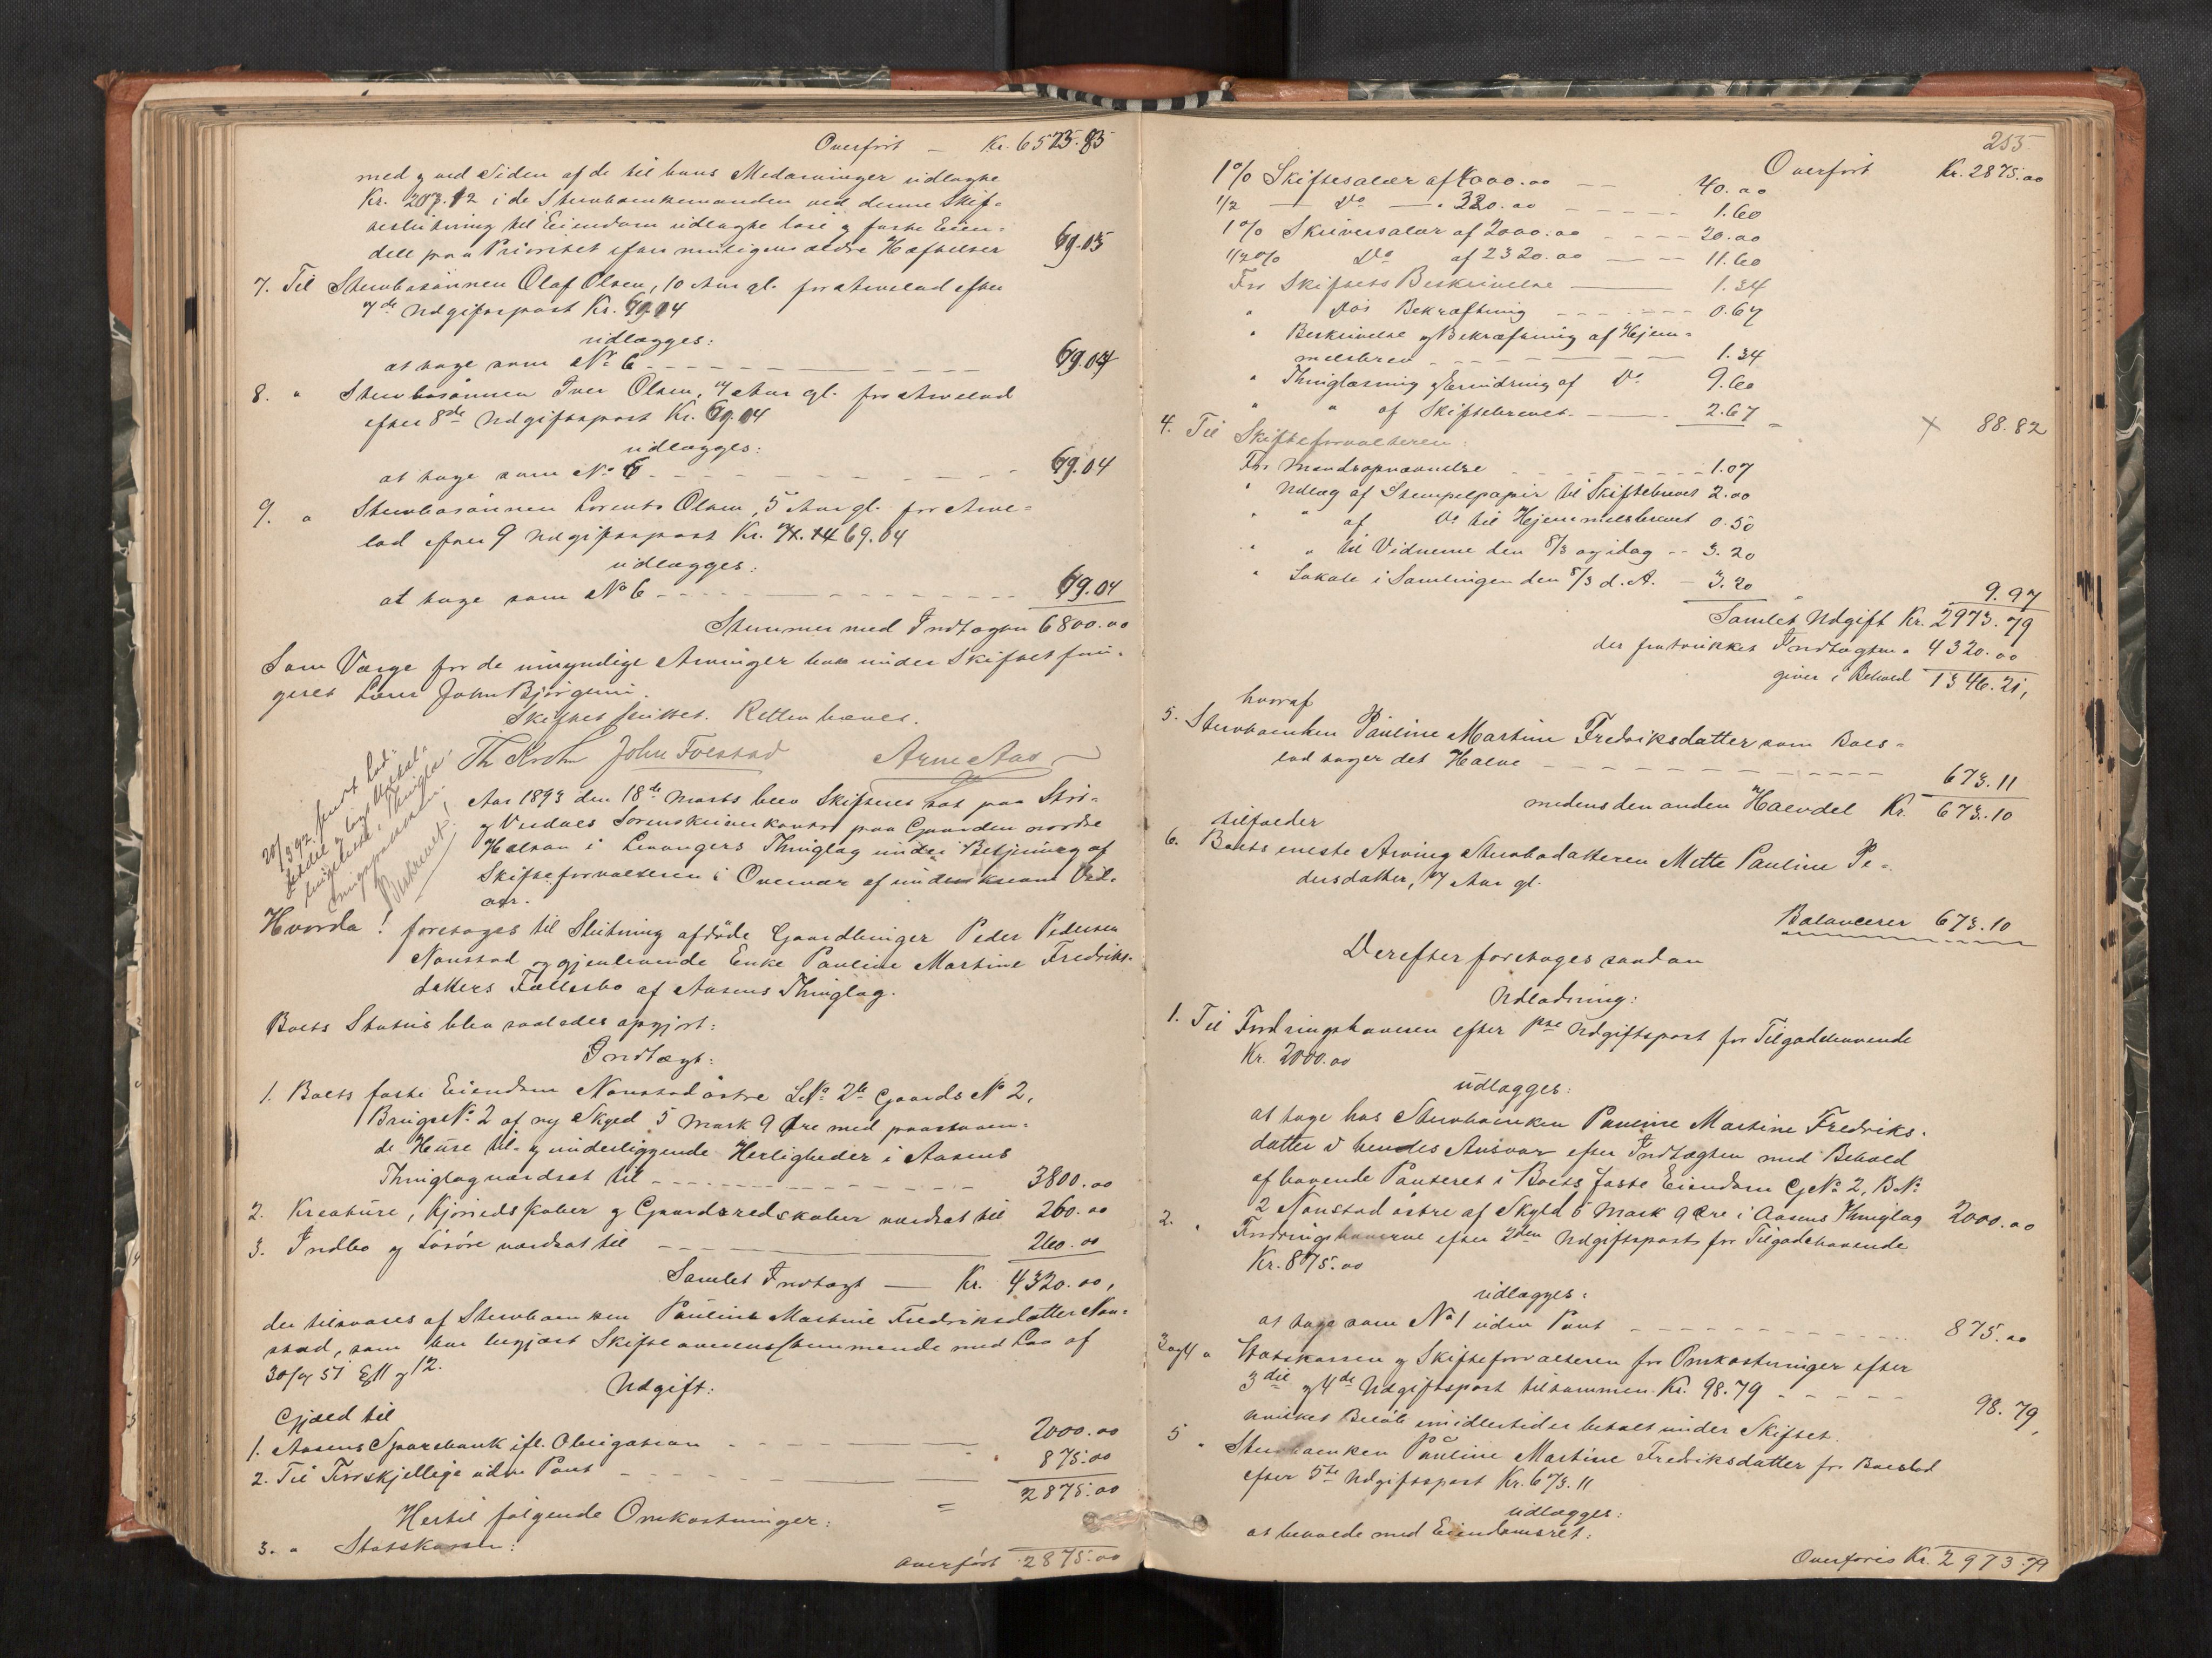 Overført — Kr. 6523.83
med og ved Siden af de til hans Medarvinger udlagte
Kr. 207.12 i de Stervboenkemanden ved denne Skif-
teslutning til Eiendom udlagte løse og faste Eien-
dele paa Prioritet efter muligens ældre Heftelser 69.05
7. Til Stervbosønnen Olaf Olsen, 10 Aar gl. for Arvelod efter
7de Udgiftspost Kr. 69.04
udlægges:
at tage som No 6 - - - 69.04
8. " Stervbosønnen Iver Olsen, 7 Aar gl. for Arvelod
efter 8de Udgiftspost Kr. 69.04
udlægges:
at tage som No 6 - - - 69.04
9. " Stervbosønnen Lorents Olsen, 5 Aar gl. for Arve-
lod efter 9 Udgiftspost Kr. 69.04
udlægges:
at tage som No 6 - - - 69.04
Stemmer med Indtægten 6800.00
Som Værge for de umyndige Arvinger har under Skiftet fun-
geret Lars John Bjørgum.
Skiftet sluttet. Retten hævet.
Th Krohn John Foestad Arne Aas
Aar 1893 den 18de Marts blev Skifteret sat paa Stør-
og Værdals Sorenskriverkontor paa Gaarden nordre
Halsan i Levangers Thinglag under Betjening af
Skifteforvalteren i Overvær af underskrevne Vid-
ner.
Hvorda! foretoges til Slutning afdøde Gaardbruger Peder Pedersen
Nonstad og gjenlevende Enke Pauline Martine Fredriks-
datters Fællesbo af Aasens Thinglag.
Boets Status blev saaledes opgjort:
Indtægt:
1. Boets faste Eiendom Nonstad østre LNo 2b Gaards No 2,
Brugs No 2 af ny Skyld 5 Mark 9 Øre med paastaaen-
de Huse til- og underliggende Herligheder i Aasens
Thinglag værdsat til - - - 3800.00
2. Kreature, Kjøredskaber og Gaardsredskaber værdsat til 260.00
3. Indbo og Løsøre værdsat til - - - 260.00
Samlet Indtægt — Kr. 4320.00,
der tilsvares af Stervboenken Pauline Martine Fredriksdatter Non-
stad, som har begjært Skifte overensstemmende med Lov af
30/7 51 §11 og 12.
Udgift:
Gjæld til
1. Aasens Sparebank ifl. Obligation - - - 2000.00
2. Til Forskjellige uden Pant - - - 875.00
= 2875.00
Hertil følgende Omkostninger:
3. " Statskassen:
Overført 2875.00
255
Overført Kr. 2875.00
1% Skiftesalær af 4000.00 — 40.00
1/2 — Do — . 320.00 - - - 1.60
1% Skriversalær af 2000.00 - - - 20.00
1/2% Do af 2320.00 — 11.60
For Skiftets Beskrivelse — 1.34
" Dos Bekræftning - - - 0.67
" Beskrivelse og Bekræftning af Hjem-
melsbrev - - - 1.34
" Thinglæsning og Erindring af Do 9.60
" " af Skiftebrevet. — 2.67
x 88.82
4. Til Skifteforvalteren:
For Mandsopnævnelse - - - 1.07
" Udlæg af Stempelpapir til Skiftebrevet 2.00
" " af Do til Hjemmelsbrevet 0.50
" " til Vidnerne den 8/3 og idag -- 3.20
" Lokale i Samlingen den 8/3 d. A. - 3.20
9.97
Samlet Udgift Kr. 2973.79
der fratrukket Indtægten " 4320.00
giver i Behold 1346.21,
hvoraf
5. Stervboenken Pauline Martine Fredriksdatter som Boes-
lod tager det Halve - - - 673.11
medens den anden Halvdel Kr. 673.10
tilfalder
6. Boets eneste Arving Stervbodatteren Mette Pauline Pe-
dersdatter, 17 Aar gl.
Balancerer 673.10
Derefter foretoges saadan
Udlodning:
1. Til Fordringshaveren efter 1ste Udgiftspost for Tilgodehavende
Kr. 2000.00
udlægges:
at tage hos Stervboenken Pauline Martine Fredriks-
datter i hendes Ansvar efter Indtægten med Behold
af havende Panteret i Boets faste Eiendom GNo 2, BNo
2 Nonstad østre af Skyld 5 Mark 9 Øre i Aasens Thinglag 2000.00
2. " Fordringshaverne efter 2den Udgiftspost for Tilgodehavende
Kr. 875.00
udlægges:
at tage som No 1 uden Pant - - - 875.00
3 og 4 " Statskassen og Skifteforvalteren for Omkostninger efter
3die og 4de Udgiftspost tilsammen Kr. 98.79 - - - 98.79,
hvilket Beløb imidlertid er betalt under Skiftet.
5 " Stervboenken Pauline Martine Fredriksdatter for Boeslod
efter 5te Udgiftspost Kr. 673.11
udlægges:
at beholde med Eiendomsret:
Overføres Kr. 2973.79